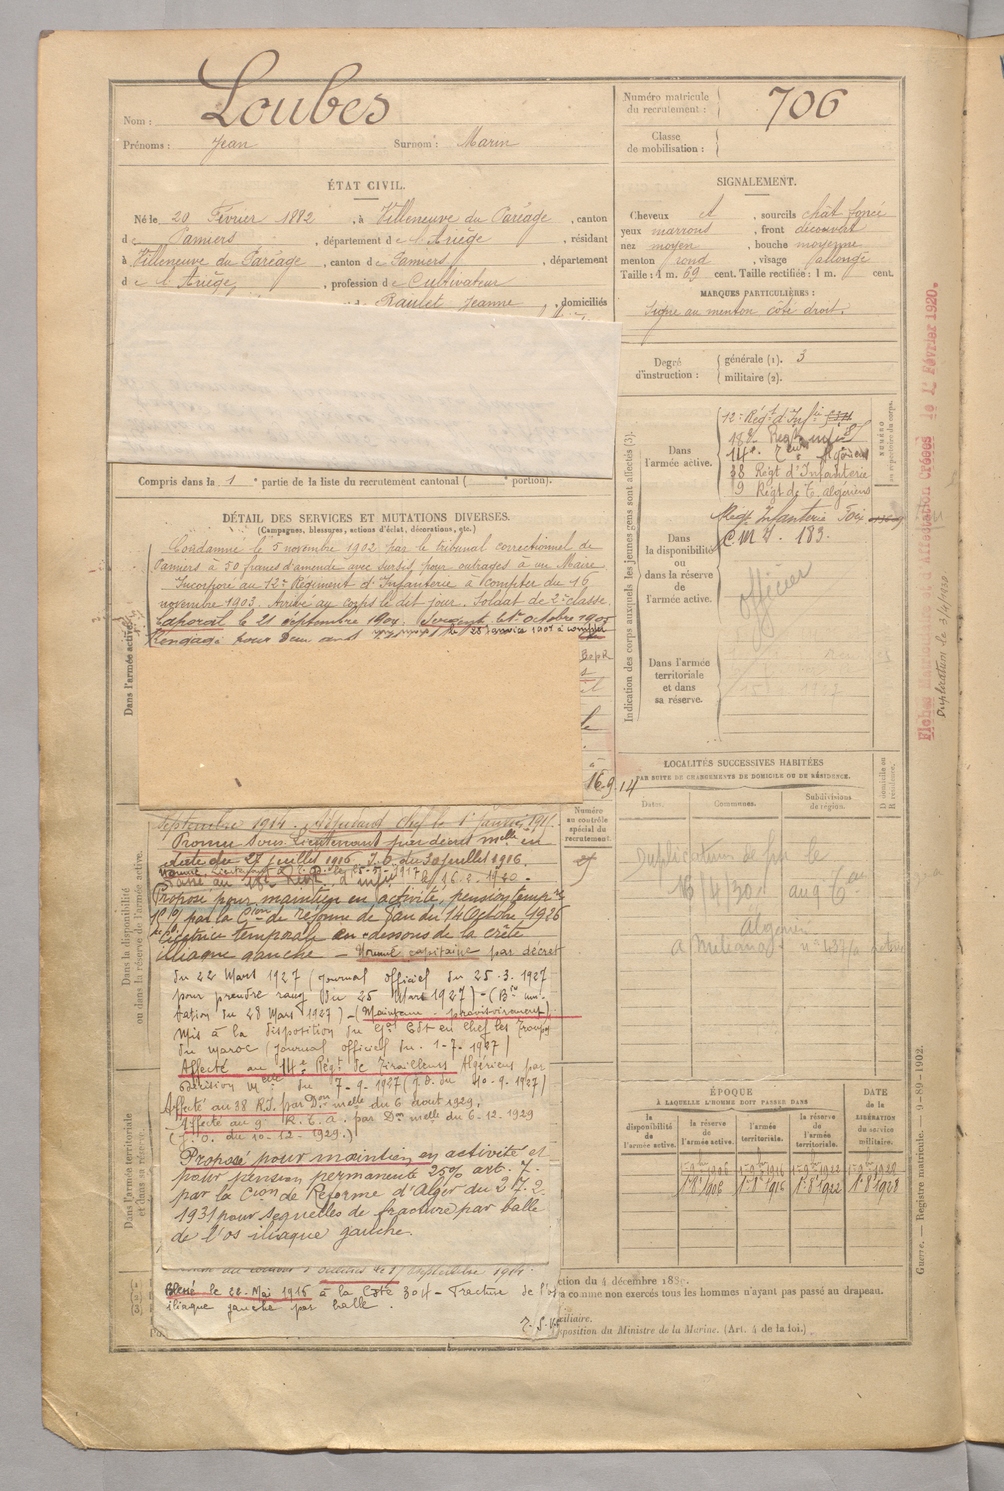 Nom : Loubes
Prénoms : Jean Surnom : Marin
Numéro matricule du recrutement : 706
Classe de mobilisation :
ÉTAT CIVIL.
Né le 20 Février 1882, à Villeneuve du Paréage, canton
de Pamiers, département de l'Ariège, résidant
à Villeneuve du Paréage, canton de Pamiers, département
de l'Ariège, profession de Cultivateur
Raulet Jeanne, domiciliés
SIGNALEMENT.
Cheveux et, sourcils chât foncé
yeux marrons, front découvert
nez moyen, bouche moyenne
menton rond, visage allongé
Taille : 1 m. 69 cent. Taille rectifiée : 1 m. cent.
MARQUES PARTICULIÈRES :
Signe au menton côté droit.
Degré d'instruction : générale (1). 3
militaire (2).
Compris dans la 1e partie de la liste du recrutement cantonal ( portion).
DÉTAIL DES SERVICES ET MUTATIONS DIVERSES.
(Campagnes, blessures, actions d'éclat, décorations, etc.)
Dans l'armée active.
Condamné le 5 novembre 1902 par le tribunal correctionnel de
Pamiers à 50 francs d'amende avec sursis pour outrages à un Maire
Incorporé au 12e Régiment d'Infanterie à compter du 16
novembre 1903. Arrivé au corps le dit jour. Soldat de 2e classe.
Caporal le 21 septembre 1904. Sergent le 1er octobre 1905
Rengagé pour deux ans
16.9.14
Dans la disponibilité ou dans la réserve de l'armée active.
Septembre 1914. Adjudant Chef le 1er janvier 1915.
Promu Sous Lieutenant par décret melle en
date du 27 juillet 1916 J.O. du 30 juillet 1916.
Proposé pour maintien en activité, pension tempre
10% par la Cion de réforme de Gau du 14 Octobre 1926
Cicatrice temporale au-dessous de la crête
iliaque gauche — Nommé capitaine par décret
du 22 Mars 1927 (Journal officiel du 25.3.1927
pour prendre rang du 25 Mars 1927) - (
tation du 28 Mars 1927) - (Maintenu provisoirement)
Mis à la disposition du Gal Cdt en chef les Troupes
du Maroc (Journal officiel du 1-7-1927)
Affecté au 14e Régt de Tirailleurs Algériens par
décision melle du 7-9-1927 (J.O. du 10-9-1927)
Affecté au 38 R.I. par Don melle du 6 août 1929.
Affecté au 9e R.T.A. par Don melle du 6-12-1929
(J.O. du 10-12-1929.)
Proposé pour maintien en activité et
pour pension permanente 25% art. 7.
par la Cion de Réforme d'Alger du 27.2.
1931 pour sequelles de fracture par balle
de l'os iliaque gauche.
Dans l'armée territoriale et dans sa réserve.
Blessé le 22 Mai 1916 à la Cote 304 - Fracture de l'os
iliaque gauche par balle.
Indication des corps auxquels les jeunes gens sont affectés (3).
NUMÉRO au répertoire du corps.
Dans l'armée active.
12e Régt d'Infie
18e Regt infie
14e Teurs Algériens
38 Régt d'Infanterie
9 Régt de T. algériens
Dans la disponibilité ou dans la réserve de l'armée active.
Regt Infanterie Foix
C M 4. 183.
officier
Dans l'armée territoriale et dans sa réserve.
LOCALITÉS SUCCESSIVES HABITÉES
PAR SUITE DE CHANGEMENTS DE DOMICILE OU DE RÉSIDENCE.
Dates. Communes. Subdivisions de région. D domicile ou R résidence.
Numéro au contrôle spécial du recrutement.
16/4/30 au 9e
Algérien
à Miliana
ÉPOQUE
À LAQUELLE L'HOMME DOIT PASSER DANS
la disponibilité de l'armée active.
la réserve de l'armée active.
l'armée territoriale.
la réserve de l'armée territoriale.
DATE de la LIBÉRATION du service militaire.
1er 8bre 1906 1er 8bre 1916 1er 8bre 1922 1er 8bre 1928
ction du 4 décembre 188
a comme non exercés tous les hommes n'ayant pas passé au drapeau.
xiliaire.
position du Ministre de la Marine. (Art. 4 de la loi.)
Guerre. — Registre matricule. — 9-89-1902.
d'Affectation Créées le 1er Février 1920.